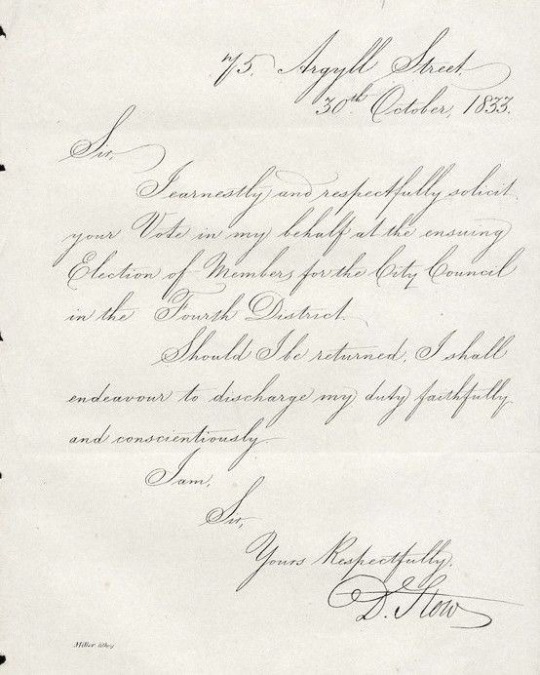 75. Argyll Street
30th October, 1833.
Sir,
I earnestly and respectfully solicit
your Vote in my behalf at the ensuing
Election of Members for the City Council
in the Fourth District.
Should I be returned, I shall
endeavour to discharge my duty faithfully
and conscientiously
I am,
Sir,
Yours Respectfully,
D. Stow
Miller lithog